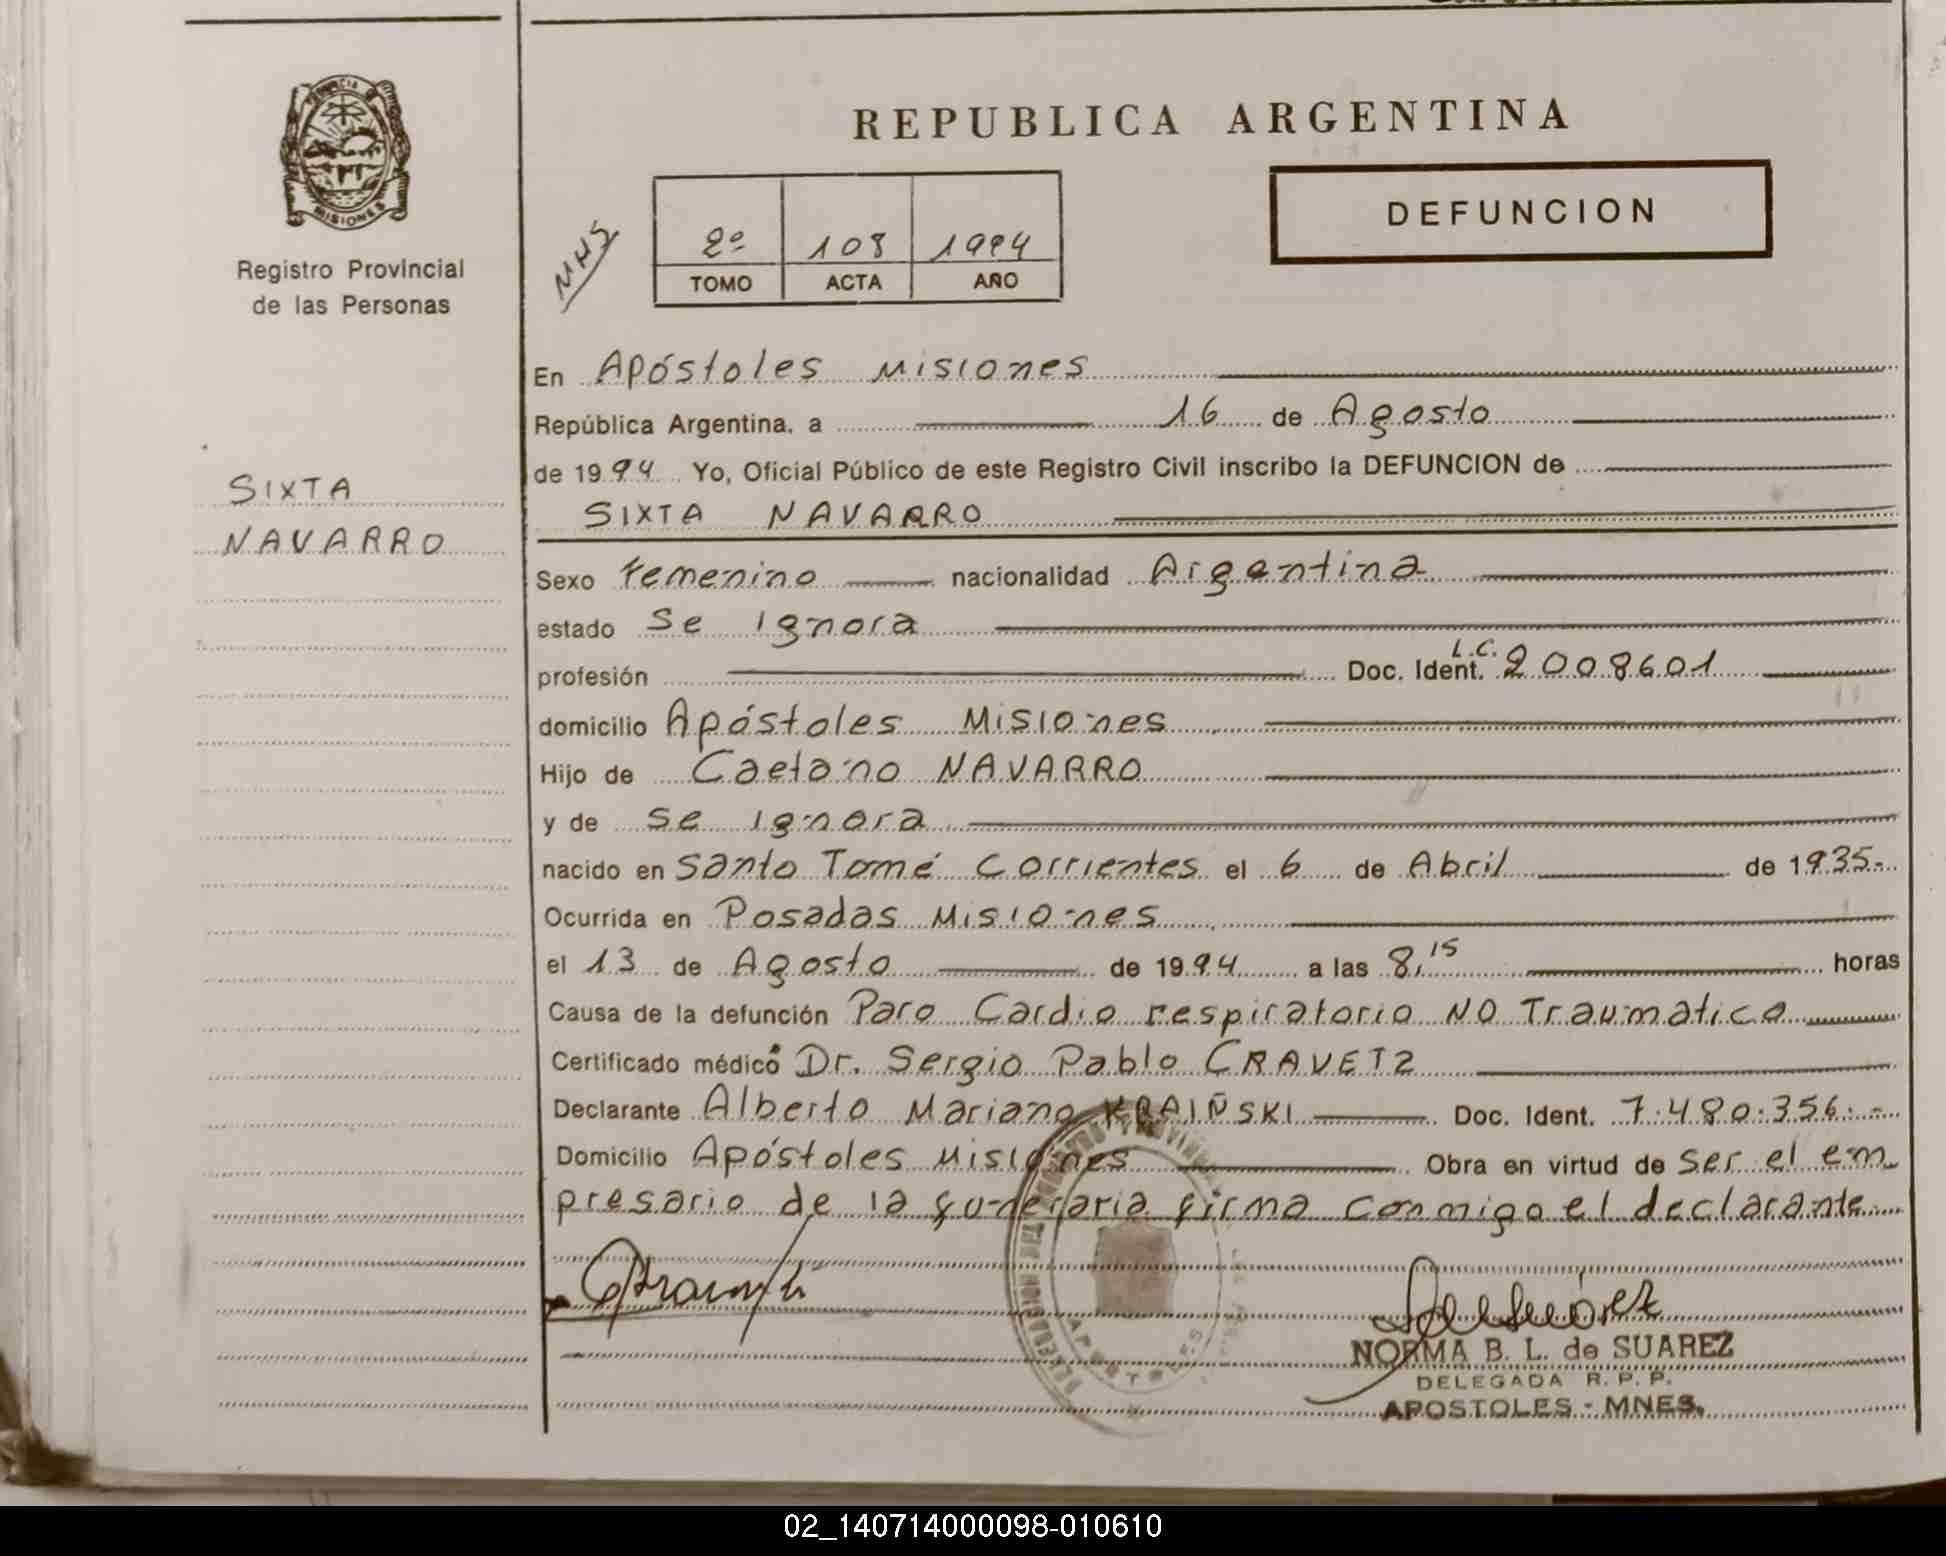 PROVINCIA DE
MISIONES
Registro Provincial
de las Personas
SIXTA
NAVARRO
REPUBLICA ARGENTINA
DEFUNCION
2º 108 1994
TOMO ACTA AÑO
En Apóstoles Misiones
República Argentina, a 16 de Agosto
de 1994 Yo, Oficial Público de este Registro Civil inscribo la DEFUNCION de
SIXTA NAVARRO
Sexo Femenino nacionalidad Argentina
estado Se ignora
profesión Doc. Ident. L.C. 2008601
domicilio Apóstoles Misiones
Hijo de Caetano NAVARRO
y de se ignora
nacido en Santo Tomé Corrientes el 6 de Abril de 1935.-
Ocurrida en Posadas Misiones
el 13 de Agosto de 1994 a las 8,15 horas
Causa de la defunción Paro Cardio respiratorio NO Traumatico
Certificado médico Dr. Sergio Pablo CRAVETZ
Declarante Alberto Mariano KRAIÑSKI Doc. Ident. 7.480.356.-
Domicilio Apóstoles Misiones Obra en virtud de ser el em
presario de la funeraria firma conmigo el declarante
NORMA B. L. de SUAREZ
DELEGADA R. P. P.
APOSTOLES - MNES.
02_140714000098-010610